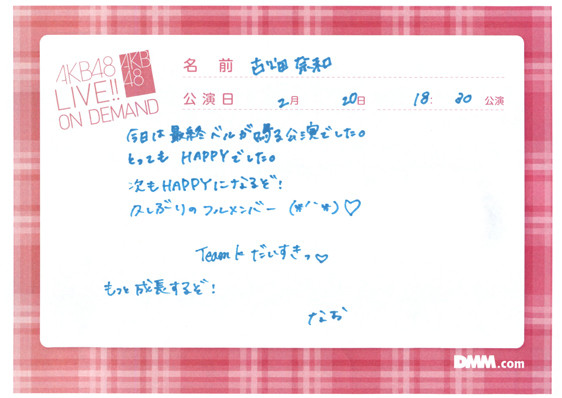 AKB48
LIVE!!
ON DEMAND
AKB
48
名前 古畑奈和
公演日 2月 20日 18:30 公演
今日は最終ベルが鳴る公演でした。
とっても HAPPYでした。
次もHAPPYになるぞ!
久しぶりのフルメンバー (*´`*)♡
Teamk だいすきっ♡
もっと成長するぞ!
なお
DMM.com